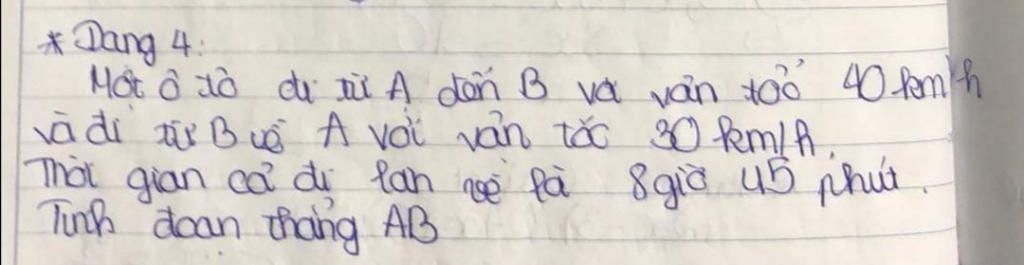 * Dạng 4:
Một ô tô đi từ A đến B và vận tốc 40 km/h
và đi từ B về A với vận tốc 30 km/h.
Thời gian cả đi lẫn về là 8 giờ 45 phút.
Tính đoạn thẳng AB